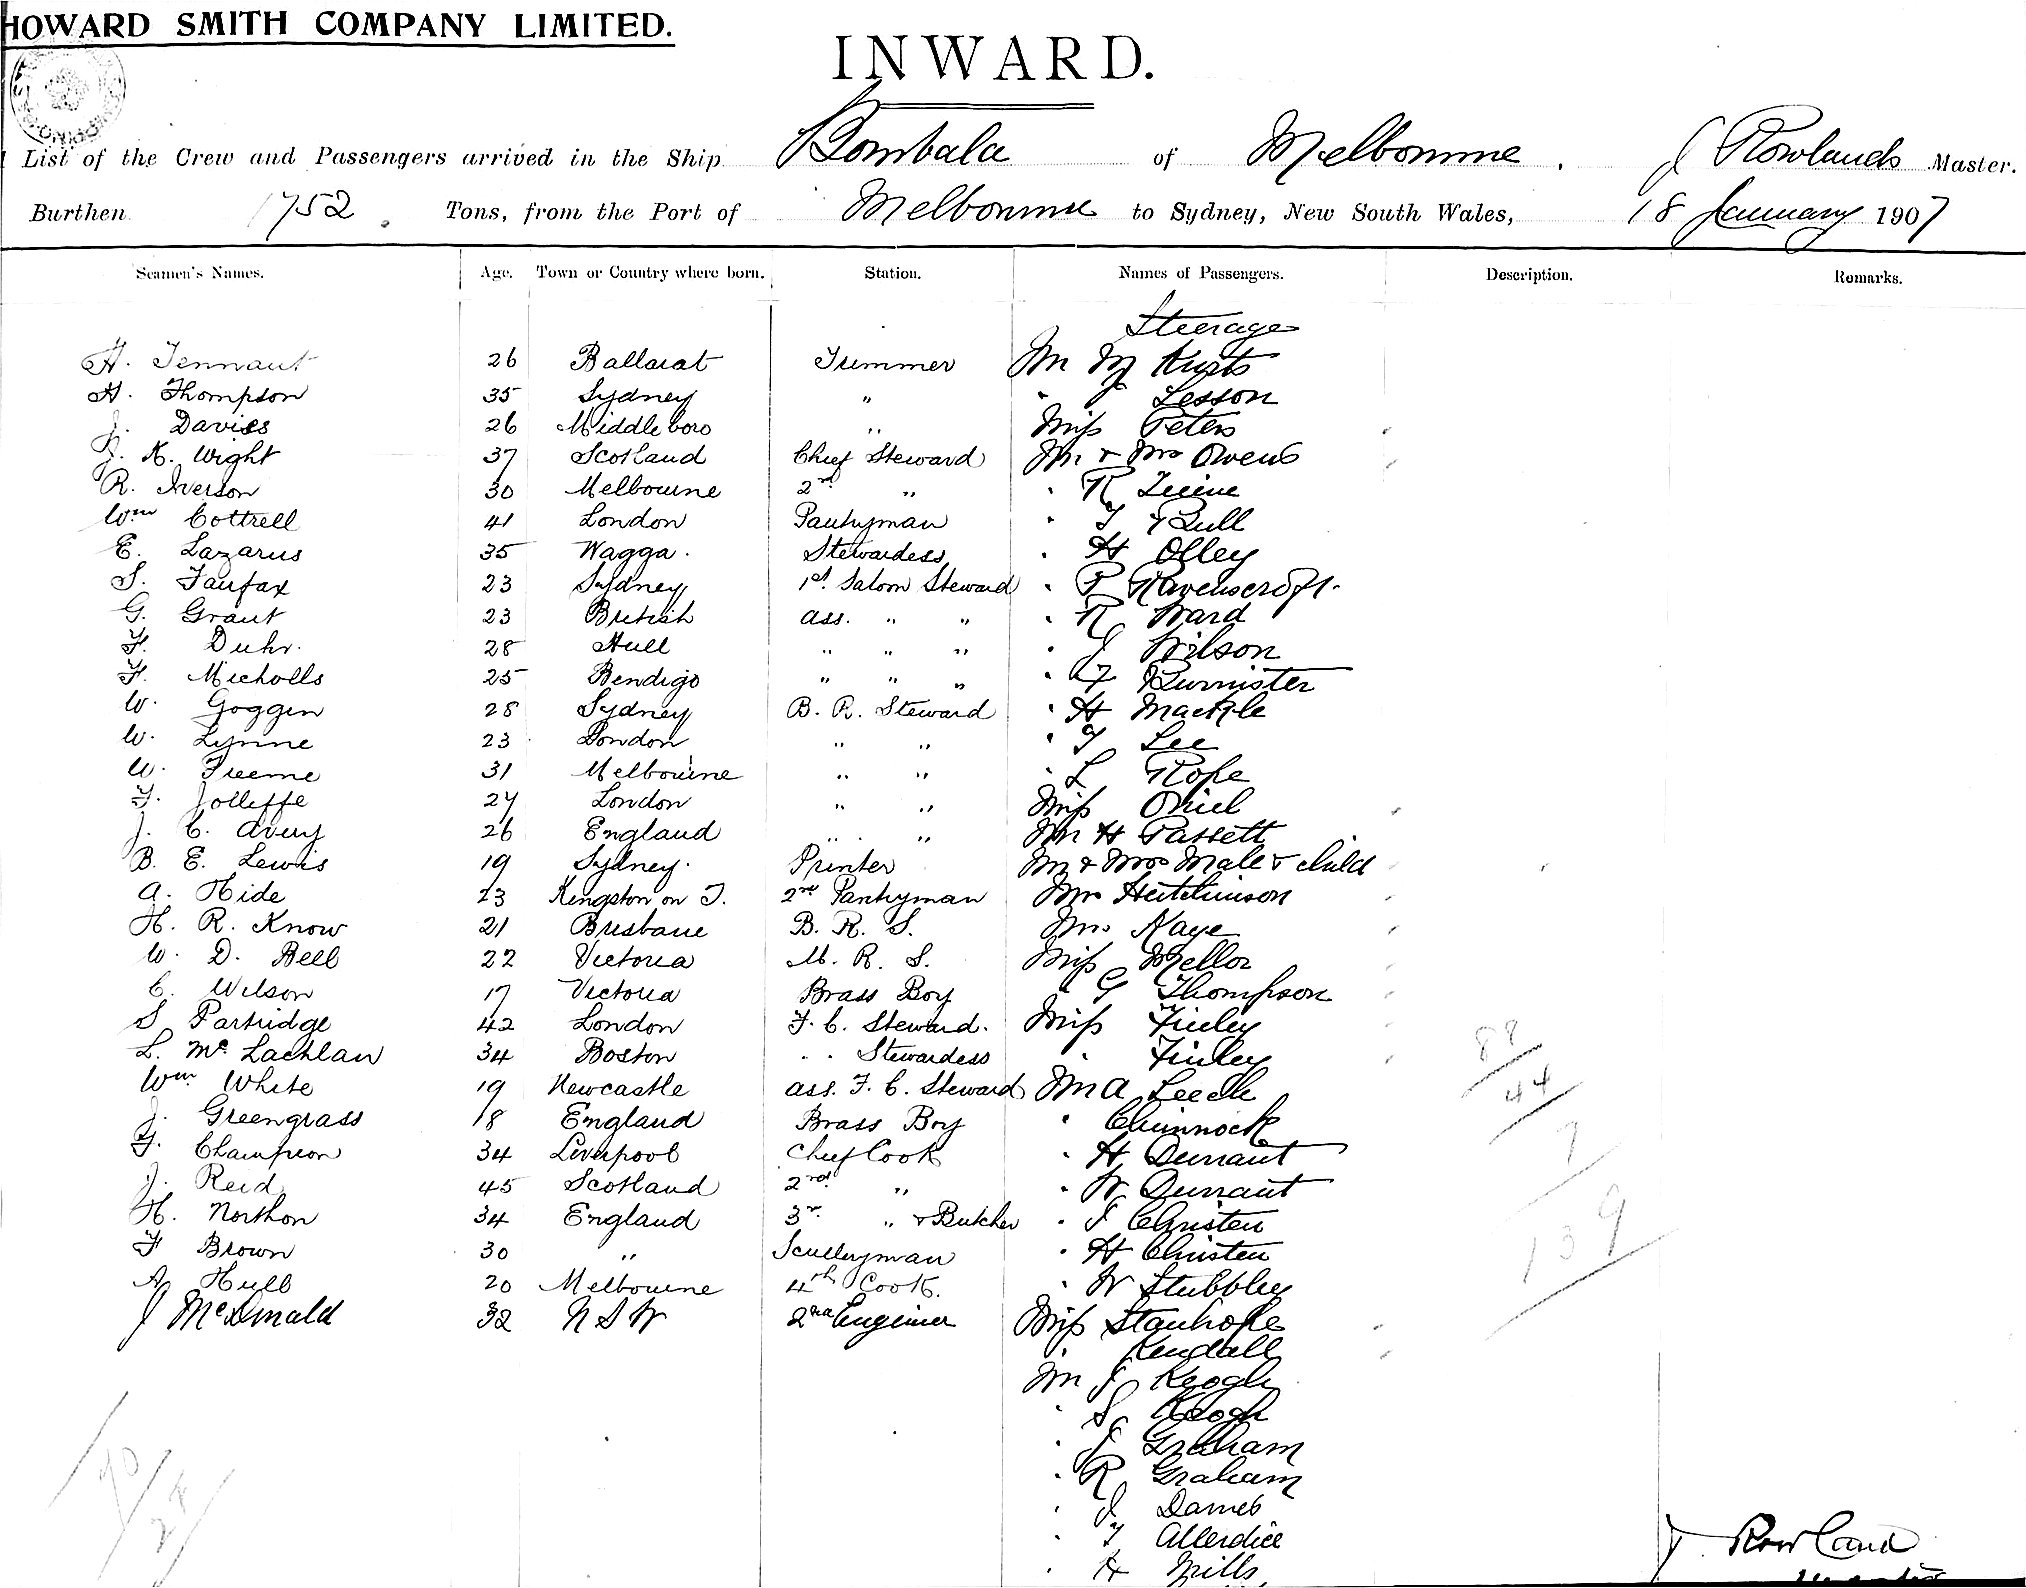 HOWARD SMITH COMPANY LIMITED.
INWARD.
List of the Crew and Passengers arrived in the Ship Bombala of Melbourne. J Rowlands Master.
Burthen 1752. Tons, from the Port of Melbourne to Sydney, New South Wales, 18 January 1907
Seamen's Names. Age. Town or Country where born. Station. Names of Passengers. Description. Remarks.
Steerage
H. Tennant 26 Ballarat Trimmer Mr Kurts
H. Thompson 35 Sydney " " J Lesson
J. Davies 26 Middleboro " Miss Peters
J. K. Wight 37 Scotland Chief Steward Mr & Mrs Owens
R. Iverson 30 Melbourne 2nd " " R
Wm Cottrell 41 London Pantryman " T Bull
E. Lazarus 35 Wagga. Stewardess " H Olley
S. Fairfax 23 Sydney 1st. Saloon Steward " P Ravenscroft.
G. Grant 23 British ass. " " " R Ward
F. Duhr. 28 Hull " " " " J Wilson
F. Nicholls 25 Bendigo " " " " Burmister
W. Goggin 28 Sydney B. R. Steward " H Mackle
W. Lynne 23 London " " " T Lee
W. Freeme 31 Melbourne " " " L Pope
F. Jolleffe 24 London " " Miss Oniel
J. C. Avery 26 England " " Mr H Passett
B. E. Lewis 19 Sydney. Printer Mr & Mrs Male & child
A. Hide 23 Kingston on T. 2nd Pantryman Mrs Hutchinson
H. R. Know 21 Brisbane B. R. S. Mrs Kaye
W. D. Bell 22 Victoria M. R. S. Miss Mellor
C. Wilson 17 Victoria Brass Boy " G Thompson
S Partridge 42 London F. C. Steward. Miss Finley
L. McLachlan 34 Boston " " Stewardess " Finley
Wm White 19 Newcastle ass. F. C. Steward Mr A Leech
J. Greengrass 18 England Brass Boy " Chinnock
F. Champion 34 Liverpool Chief Cook " H Durrant
J. Reid 45 Scotland 2nd " " W Durrant
H. Northon 34 England 3r. " & Butcher " J Christen
F Brown 30 " Sculleryman " H Christen
A Hull 20 Melbourne 4th Cook. " W Stubbley
J McDonald 32 N S W 2nd Engineer Miss Stanhope
" Kendall
Mr J Keogh
" S Keogh
" J Graham
" R Graham
" J Dames
" T Allerdice
" H Mills
88
44
7
139
J. Rowland